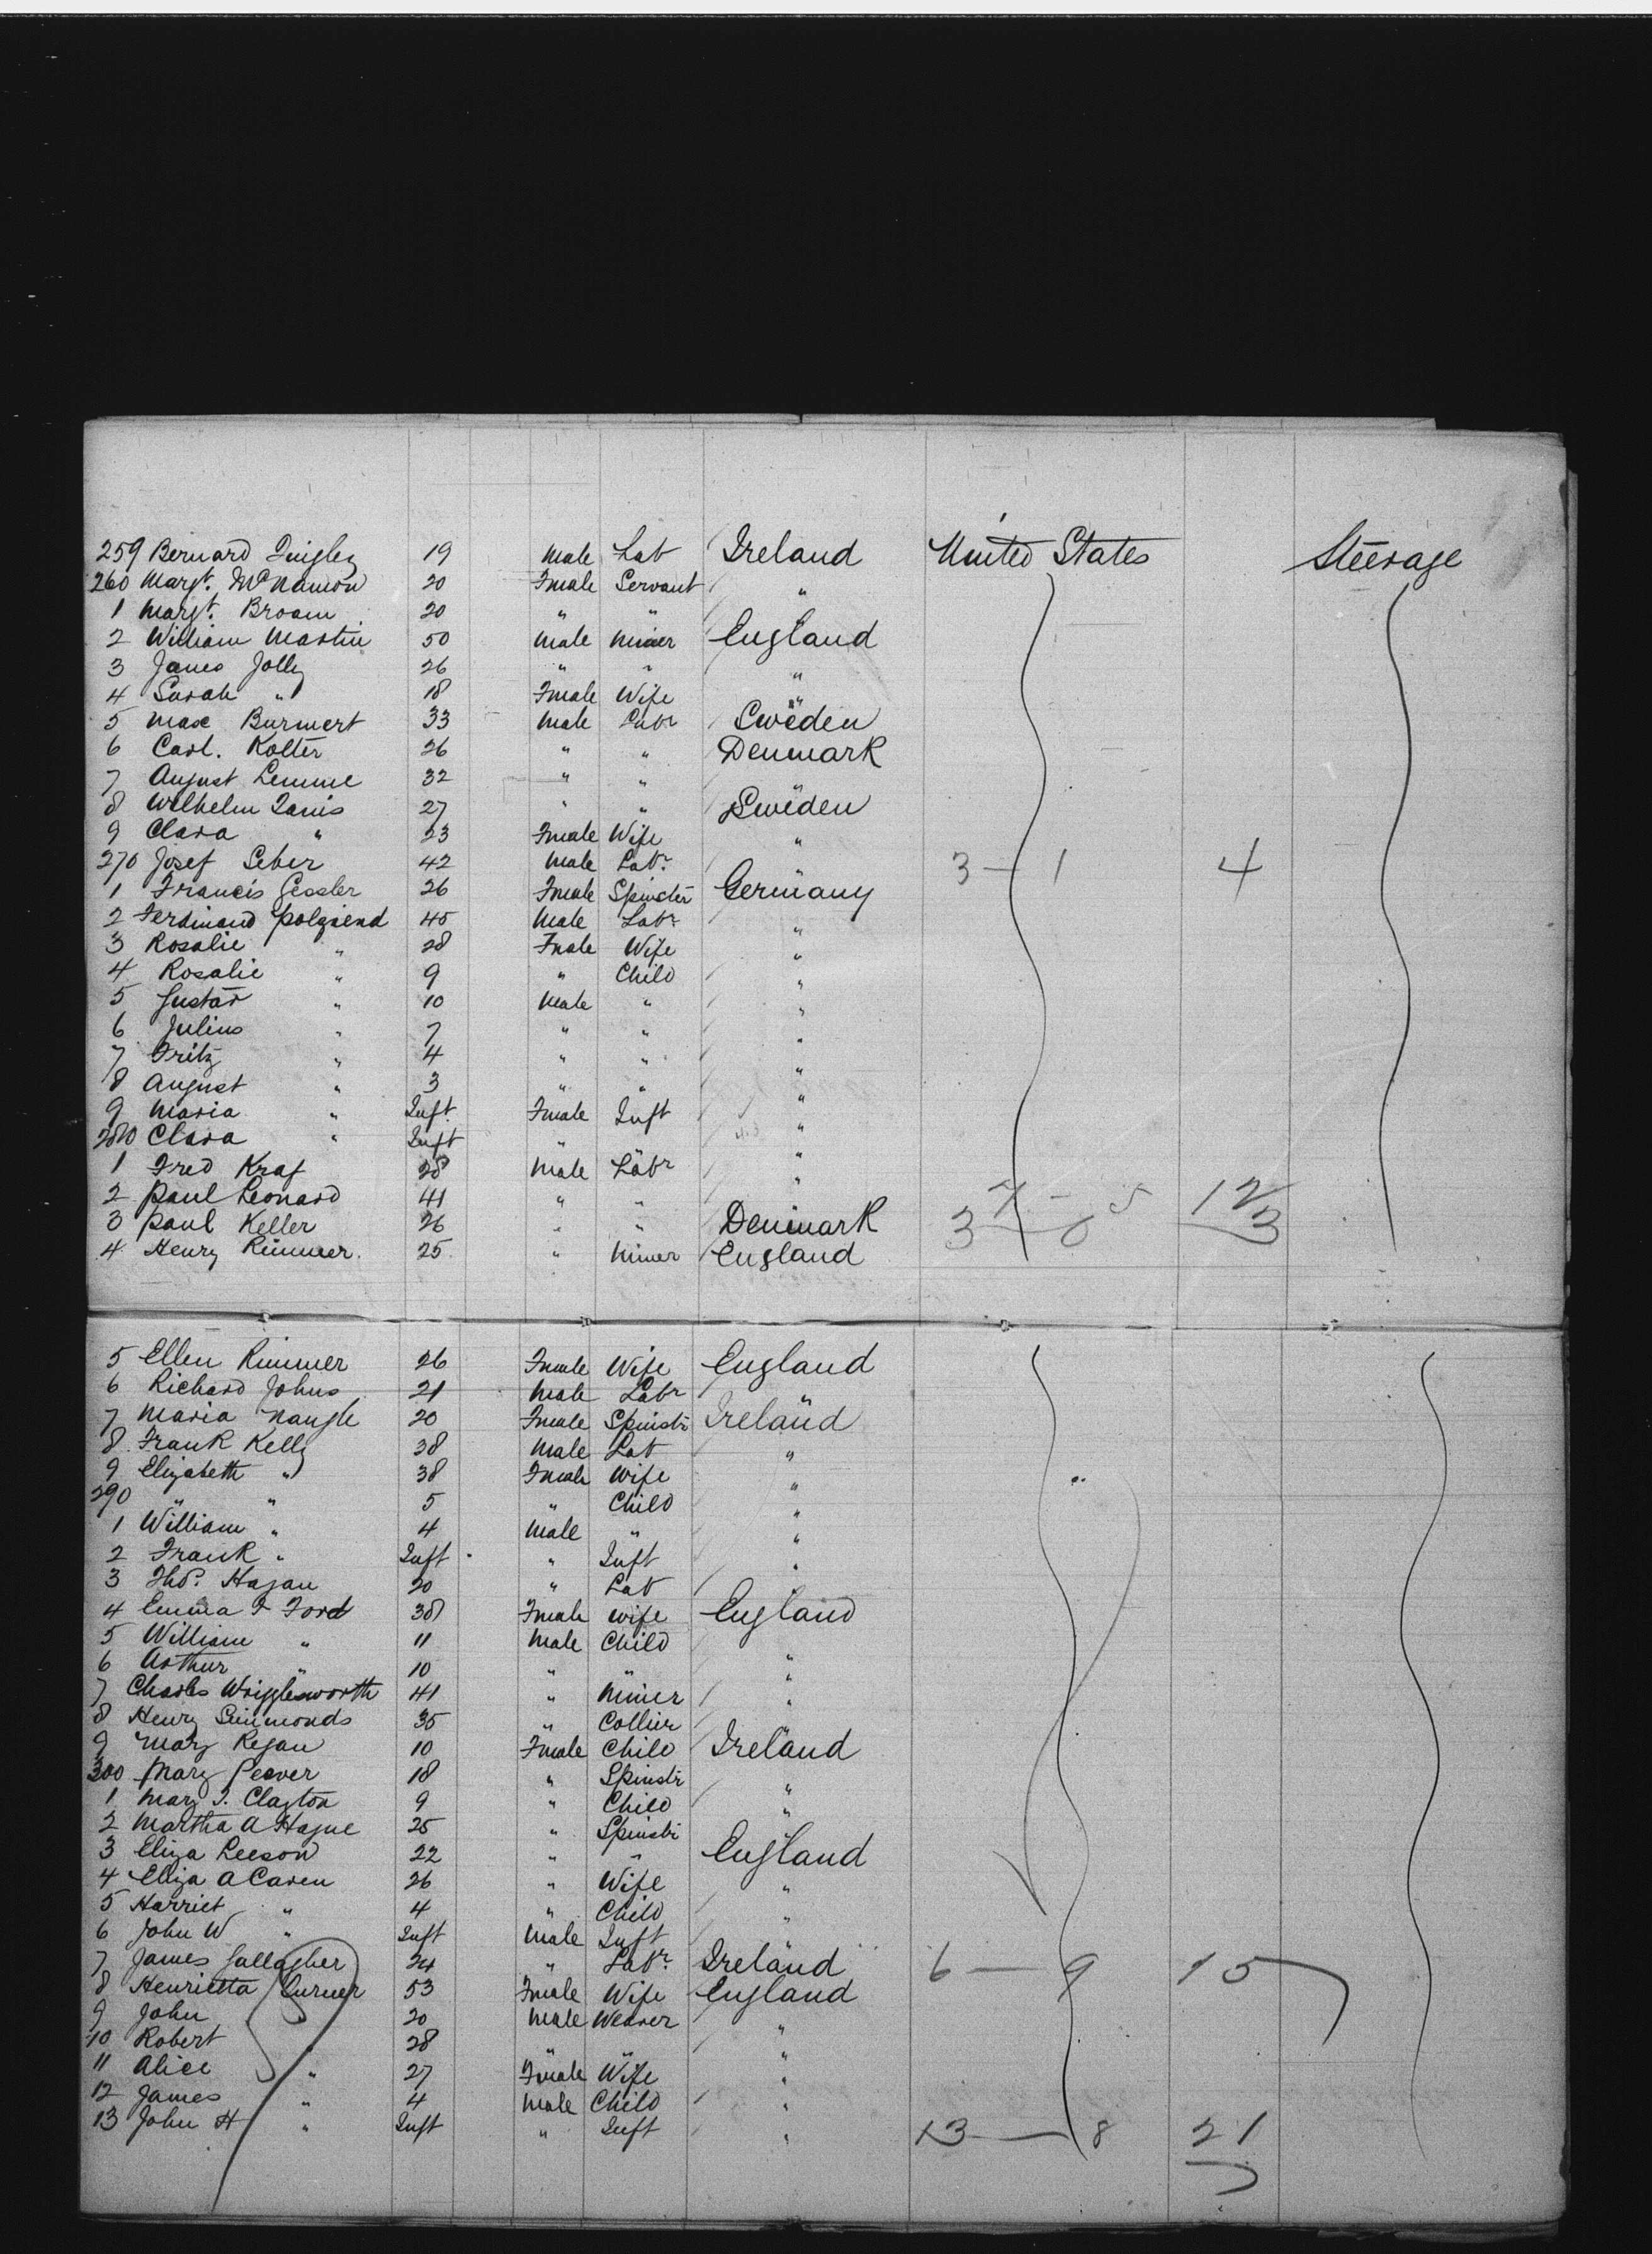 259 Bernard Quigley 19 Male Lab Ireland United States Steerage
260 Margt. McNamon 20 Fmale Servant "
1 Margt. Broam 20 " "
2 William Martin 50 Male Miner England
3 James Jolly 26 " " "
4 Sarah " 18 Fmale Wife "
5 Max Burmert 33 Male Labr Sweden
6 Carl. Kolter 26 " " Denmark
7 August Lemme 32 " " "
8 Wilhelm Janis 27 " " Sweden
9 Clara " 23 Fmale Wife "
270 Josef Seber 42 Male Labr 3 - 1 4
1 Francis Gessler 26 Fmale Spinster Germany
2 Ferdinand 45 Male Labr "
3 Rosalie " 28 Fmale Wife "
4 Rosalie " 9 " Child "
5 Gustav " 10 Male " "
6 Julius " 7 " " "
7 Fritz " 4 " " "
8 August " 3 " " "
9 Maria " Inft Fmale Inft "
280 Clara " Inft " "
1 Fred Kraf 28 Male Labr "
2 Paul Leonard 41 " " " 7 - 5 12
3 Paul Keller 26 " " Denmark 3 - 0 3
4 Henry Rimmer. 25 " Miner England
5 Ellen Rimmer 26 Fmale Wife England
6 Richard Johns 21 Male Labr "
7 Maria Nangle 20 Fmale Spinstr Ireland
8 Frank Kelly 38 Male Lab "
9 Elizabeth " 38 Fmale Wife "
290 " " 5 " Child "
1 William " 4 Male " "
2 Frank " Inft " Inft "
3 Thos. Hagan 20 " Lab
4 Emma F Ford 38 Fmale wife England
5 William " 11 Male Child "
6 Arthur " 10 " " "
7 Charles Wrigglesworth 41 " Miner "
8 Henry Simmonds 35 " Collier "
9 Mary Regan 10 Fmale Child Ireland
300 Mary Peover 18 " Spinstr "
1 Mary J. Clayton 9 " Child "
2 Martha A Hague 25 " Spinstr "
3 Eliza Leeson 22 " " England
4 Eliza A Caren 26 " Wife "
5 Harriet " 4 " Child "
6 John W " Inft Male Inft "
7 James Gallagher 24 " Labr Ireland 6 - 9 15
8 Henrietta Turner 53 Fmale Wife England
9 John 20 Male Weaver "
10 Robert 28 " " "
11 Alice " 27 Fmale Wife "
12 James " 4 Male Child "
13 John H " Inft " Inft " 13 - 8 21